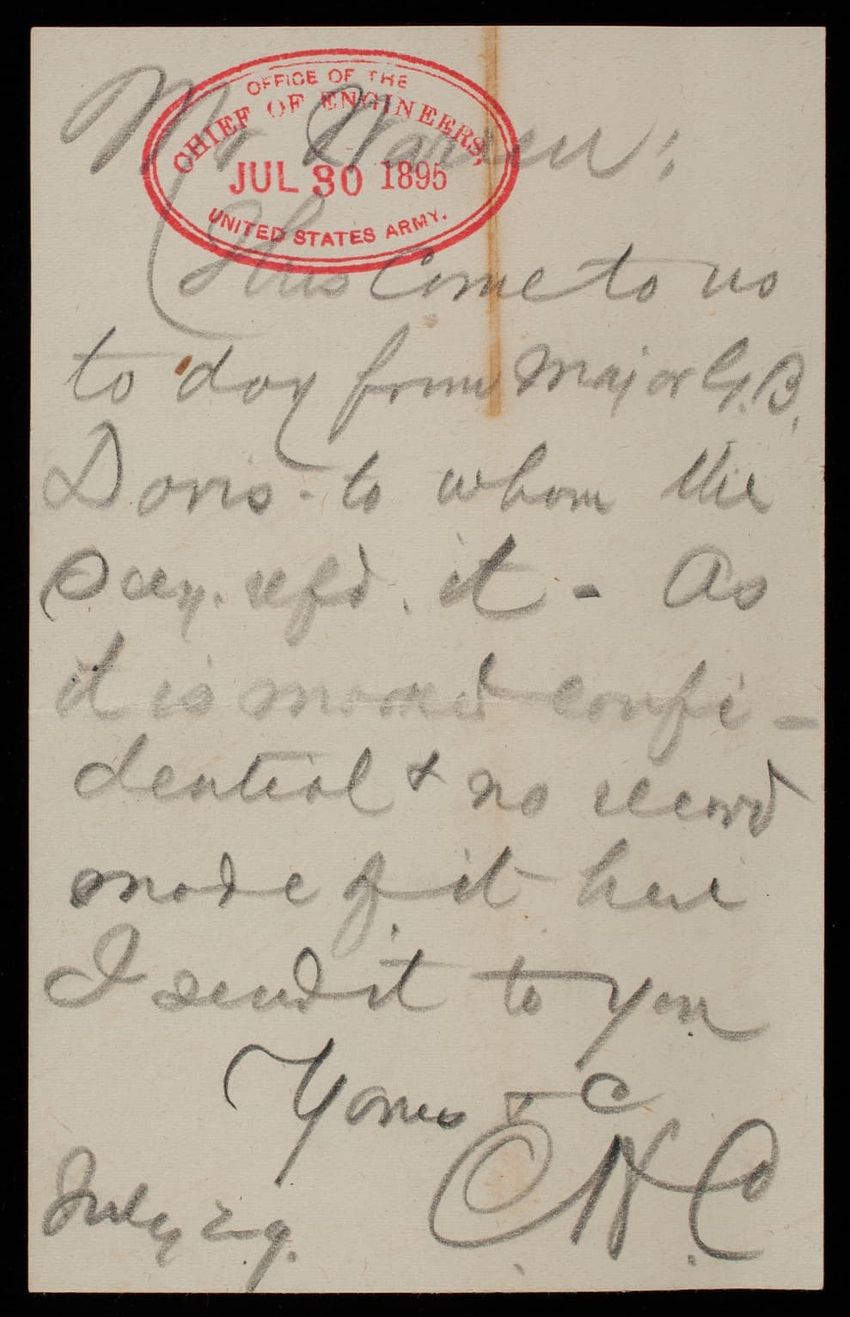 OFFICE OF THE
CHIEF OF ENGINEERS,
JUL 30 1895
UNITED STATES ARMY.
Mr Warren:
This come to us
to day from Major G. B.
Davis - to whom the
Secy. refd. it - As
it is marked confi-
dential & no record
made of it here
I send it to you
Yours &c
July 29.